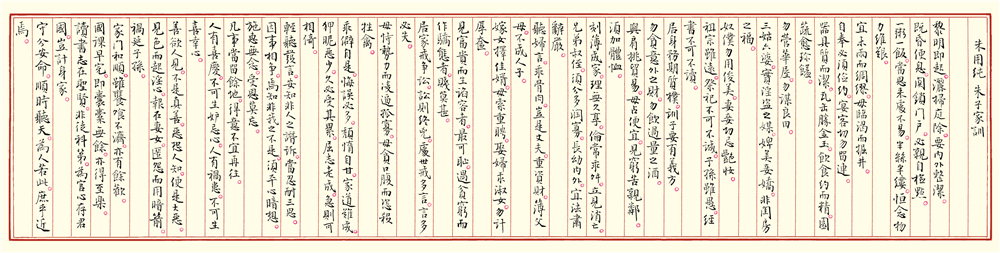 朱用純 朱子家訓
黎明即起。灑掃庭除。要內外整潔。
既昏便息。關鎖門戶。必親自檢點。
一粥一飯。當思來處不易。半絲半縷。恒念物
力維艱。
宜未雨而綢繆。毋臨渴而掘井
自奉必須儉約。宴客切勿留連。
器具質而潔。瓦缶勝金玉。飲食約而精。園
蔬愈珍饈。
勿營華屋。勿謀良田
三姑六婆。實淫盜之媒。婢美妾嬌。非閨房
之福。
奴僕勿用俊美。妻妾切忌艷妝
祖宗雖遠。祭祀不可不誠。子孫雖愚。經
書不可不讀
居身務期質樸。訓子要有義方
勿貪意外之財。勿飲過量之酒
與肩挑貿易。毋占便宜。見窮苦親鄰。
須加體恤
刻薄成家。理無久享。倫常乖舛。立見消亡
兄弟叔侄。須分多潤寡。長幼內外。宜法肅
辭嚴。
聽婦言。乖骨肉。豈是丈夫。重資財。薄父
母。不成人子。
嫁女擇佳婿。毋索重聘。娶婦求淑女。勿計
厚奩。
見富貴而生諂容者。最可恥。遇貧窮而
作驕態者。賤莫甚。
居家戒爭訟。訟則終凶。處世戒多言。言多
必失
毋恃勢力而凌逼孤寡。毋貪口腹而恣殺
牲禽。
乖僻自是。悔誤必多。頹惰自甘。家道難成。
狎昵惡少。久必受其累。屈志老成。急則可
相倚。
輕聽發言。安知非人之譖訴。當忍耐三思。
因事相爭。焉知非我之不是。須平心暗想
施惠毋念。受恩莫忘。
凡事當留餘地。得意不宜再往。
人有喜慶。不可生妒忌心。人有禍患。不可生
喜幸心。
善欲人見。不是真善。惡恐人知。便是大惡
見色而起淫心。報在妻女。匿怨而用暗箭。
禍延子孫。
家門和順。雖饔飧不濟。亦有餘歡。
國課早完。即囊橐無餘。亦得至樂
讀書志在聖賢。非徒科第。為官心存君
國。豈計身家
守分安命。順時聽天。為人若此。庶乎近
焉。